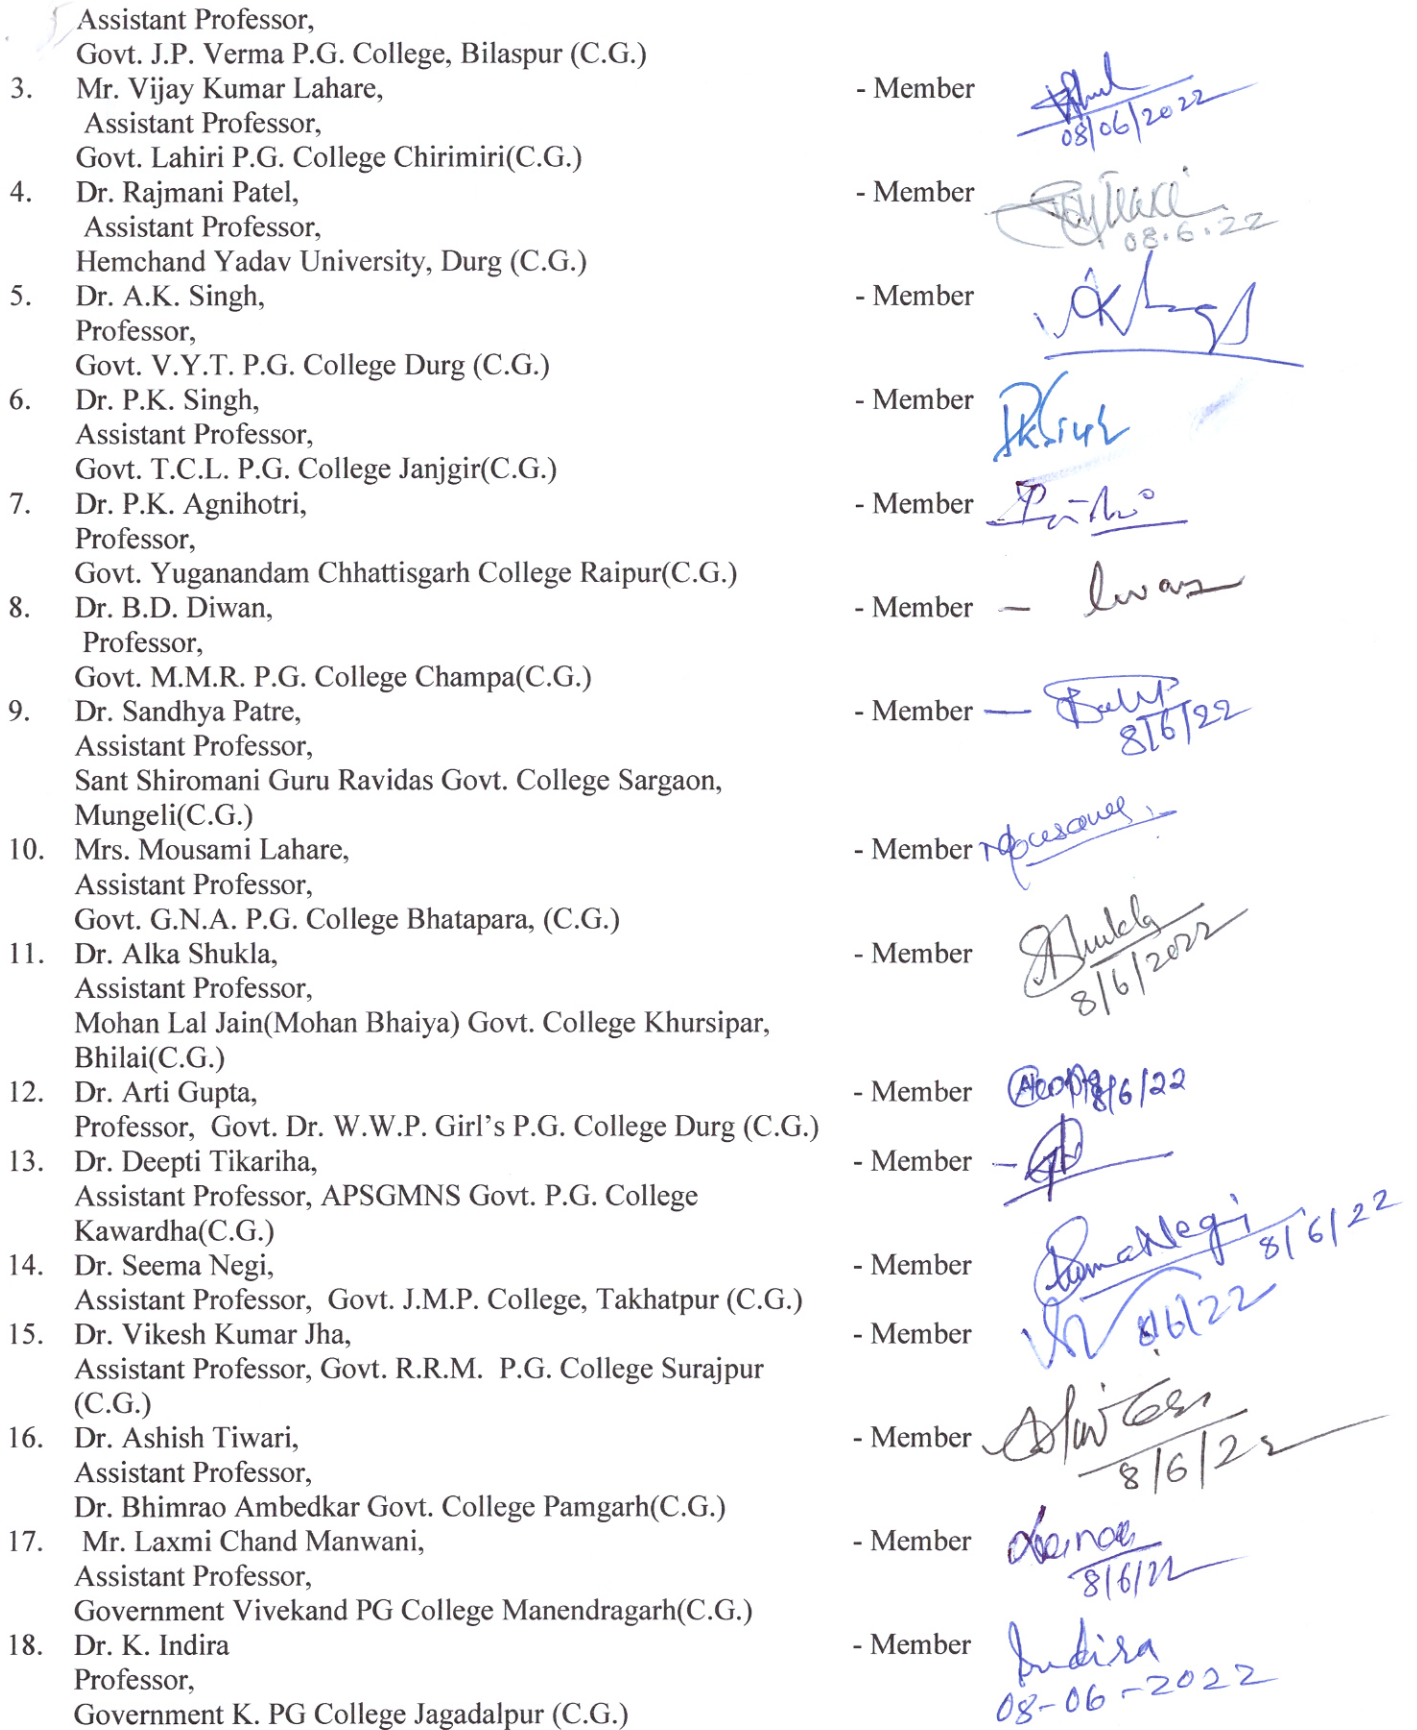 Assistant Professor,
Govt. J.P. Verma P.G. College, Bilaspur (C.G.)
3. Mr. Vijay Kumar Lahare, - Member
Assistant Professor,
08/06/2022
Govt. Lahiri P.G. College Chirimiri(C.G.)
4. Dr. Rajmani Patel, - Member
Assistant Professor,
08.6.22
Hemchand Yadav University, Durg (C.G.)
5. Dr. A.K. Singh, - Member
Professor,
Govt. V.Y.T. P.G. College Durg (C.G.)
6. Dr. P.K. Singh, - Member
Assistant Professor,
Govt. T.C.L. P.G. College Janjgir(C.G.)
7. Dr. P.K. Agnihotri, - Member
Professor,
Govt. Yuganandam Chhattisgarh College Raipur(C.G.)
8. Dr. B.D. Diwan, - Member
Professor,
Govt. M.M.R. P.G. College Champa(C.G.)
9. Dr. Sandhya Patre, - Member
8/6/22
Assistant Professor,
Sant Shiromani Guru Ravidas Govt. College Sargaon,
Mungeli(C.G.)
10. Mrs. Mousami Lahare, - Member
Assistant Professor,
Govt. G.N.A. P.G. College Bhatapara, (C.G.)
11. Dr. Alka Shukla, - Member AShukla
8/6/2022
Assistant Professor,
Mohan Lal Jain(Mohan Bhaiya) Govt. College Khursipar,
Bhilai(C.G.)
12. Dr. Arti Gupta, - Member 8/6/22
Professor, Govt. Dr. W.W.P. Girl's P.G. College Durg (C.G.)
13. Dr. Deepti Tikariha, - Member
Assistant Professor, APSGMNS Govt. P.G. College
Kawardha(C.G.)
14. Dr. Seema Negi, - Member Seema Negi 8/6/22
Assistant Professor, Govt. J.M.P. College, Takhatpur (C.G.)
15. Dr. Vikesh Kumar Jha, - Member 8/6/22
Assistant Professor, Govt. R.R.M. P.G. College Surajpur
(C.G.)
16. Dr. Ashish Tiwari, - Member
8/6/22
Assistant Professor,
Dr. Bhimrao Ambedkar Govt. College Pamgarh(C.G.)
17. Mr. Laxmi Chand Manwani, - Member
8/6/22
Assistant Professor,
Government Vivekand PG College Manendragarh(C.G.)
18. Dr. K. Indira - Member Indira
Professor,
08-06-2022
Government K. PG College Jagadalpur (C.G.)